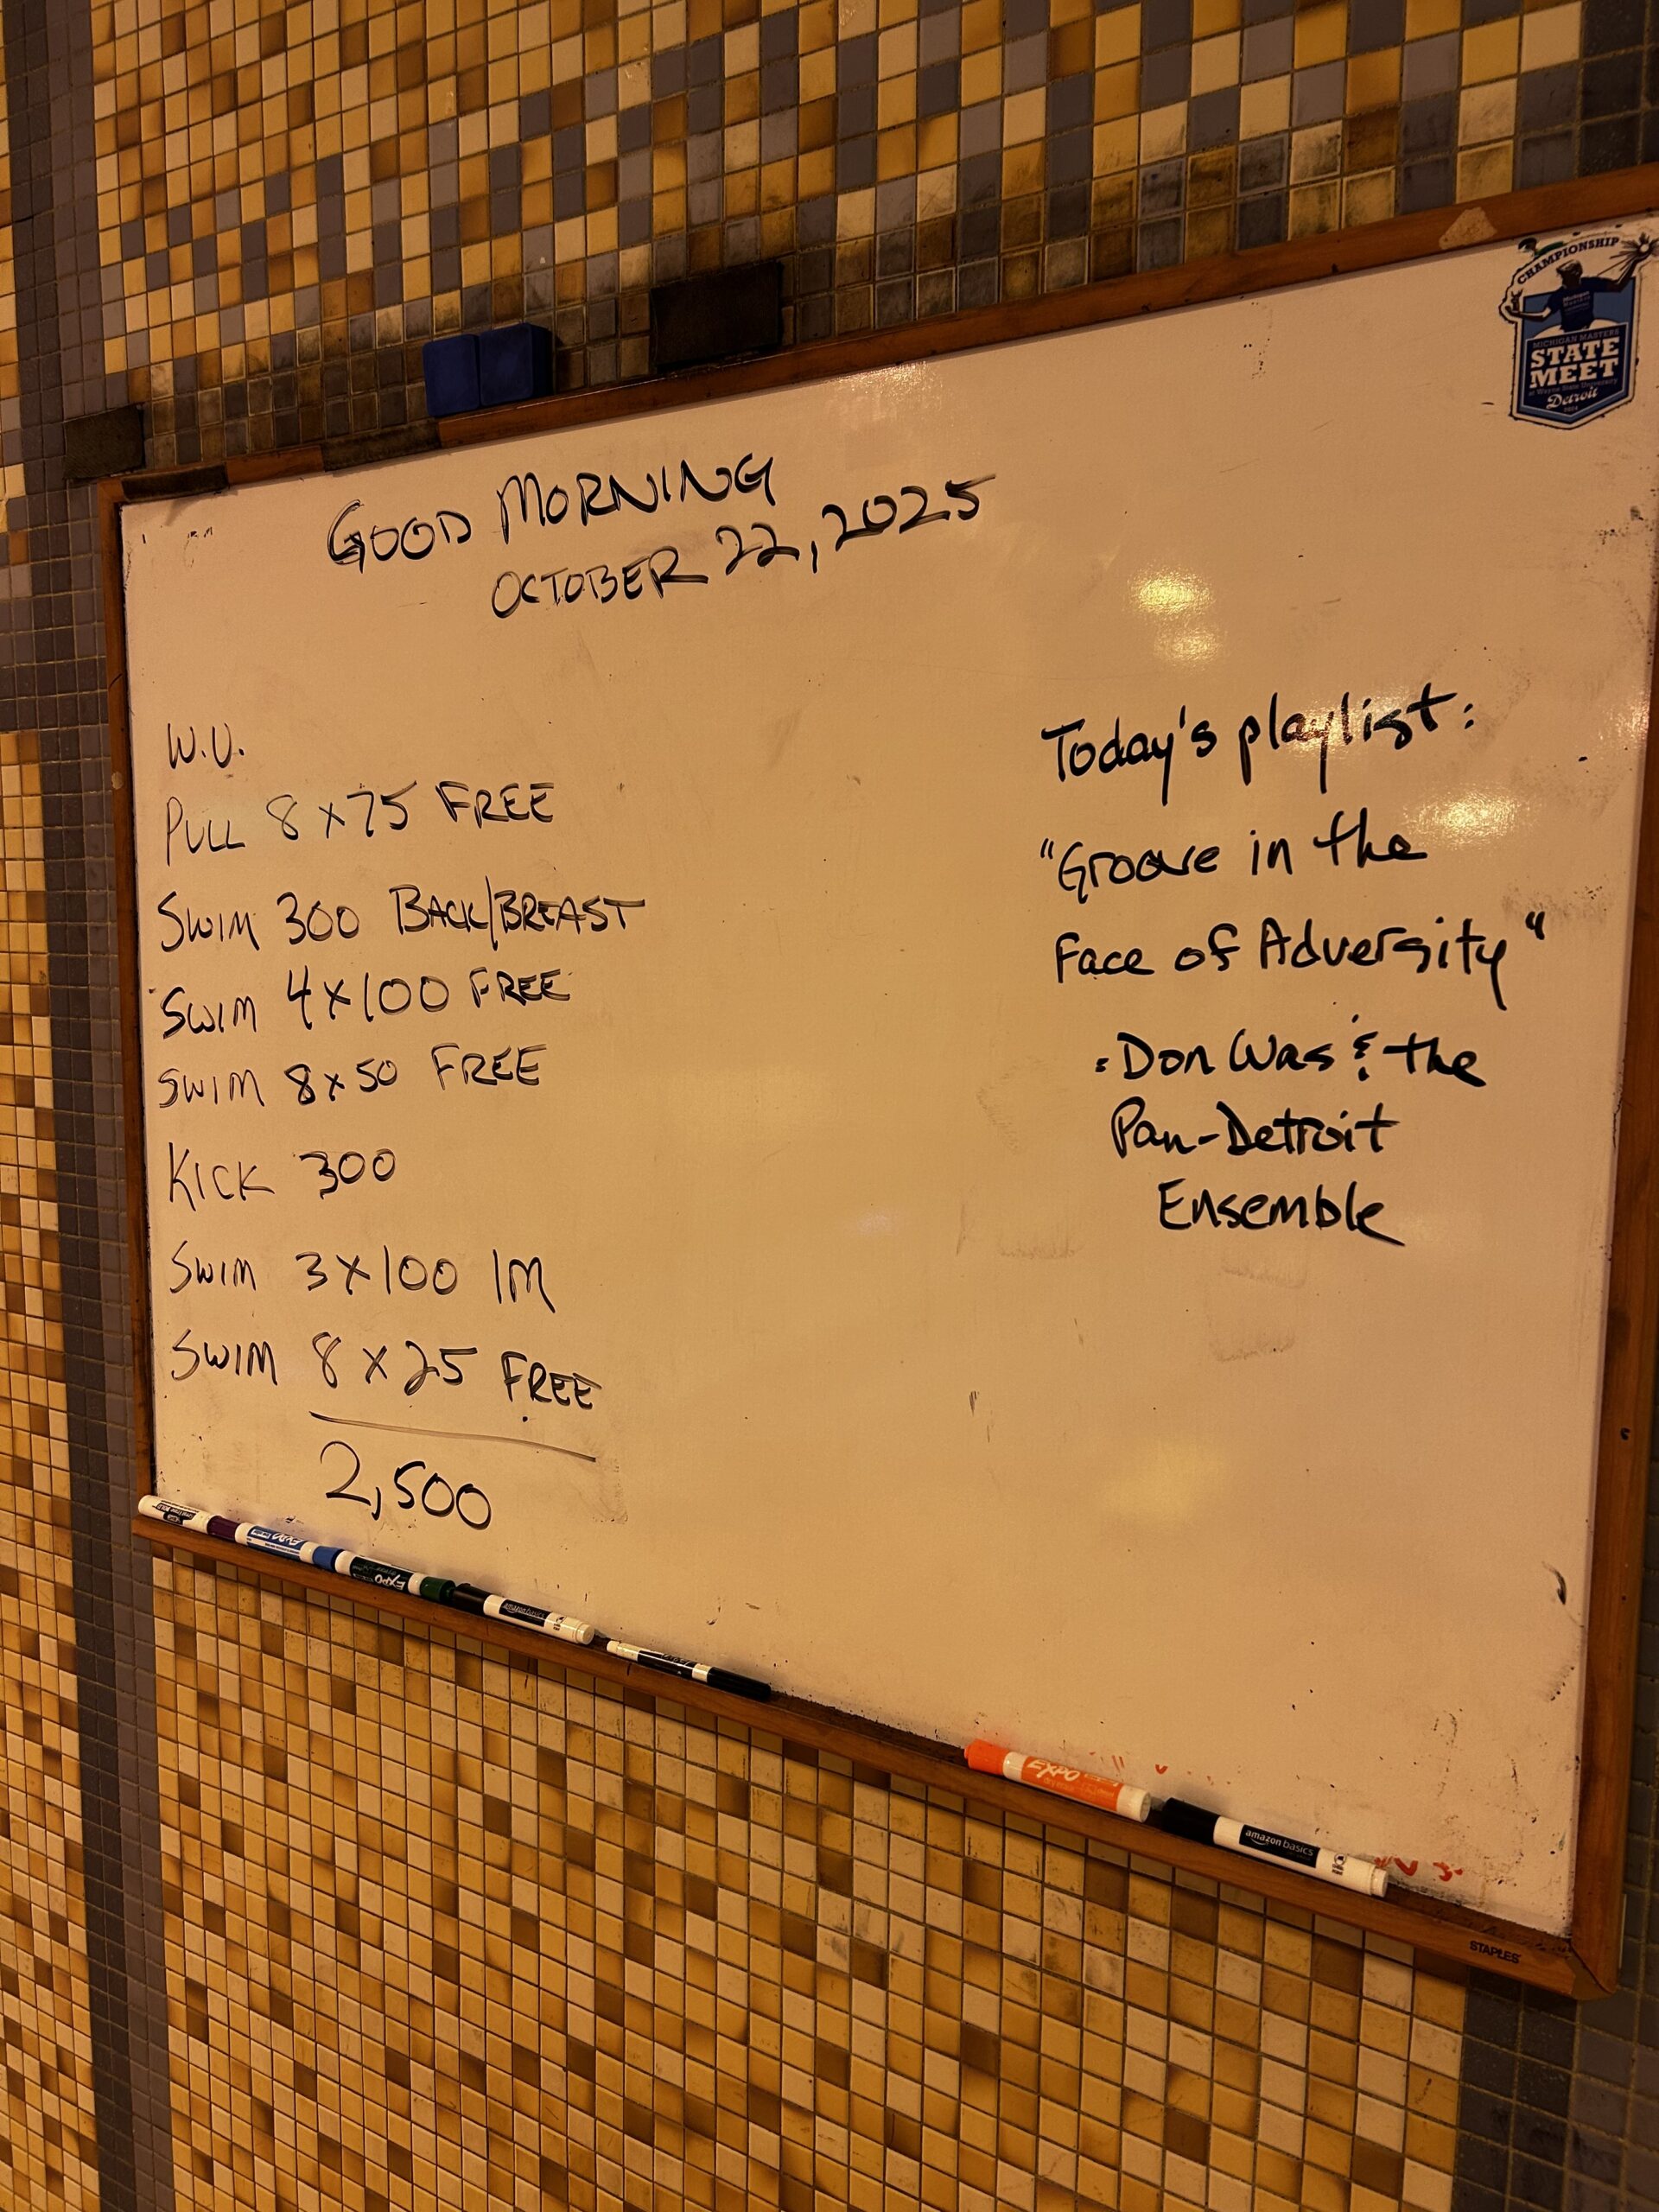 GOOD MORNING
OCTOBER 22, 2025
W.U.
PULL 8 x 75 FREE
SWIM 300 BACK/BREAST
SWIM 4 x 100 FREE
SWIM 8 x 50 FREE
KICK 300
SWIM 3 x 100 IM
SWIM 8 x 25 FREE
2,500
Today's playlist:
"Groove in the
Face of Adversity"
- Don Was & the
Pan-Detroit
Ensemble
CHAMPIONSHIP
MICHIGAN MASTERS
STATE
MEET
at Wayne State University
Detroit
2024
EXPO
EXPO
amazon basics
EXPO
amazon basics
STAPLES